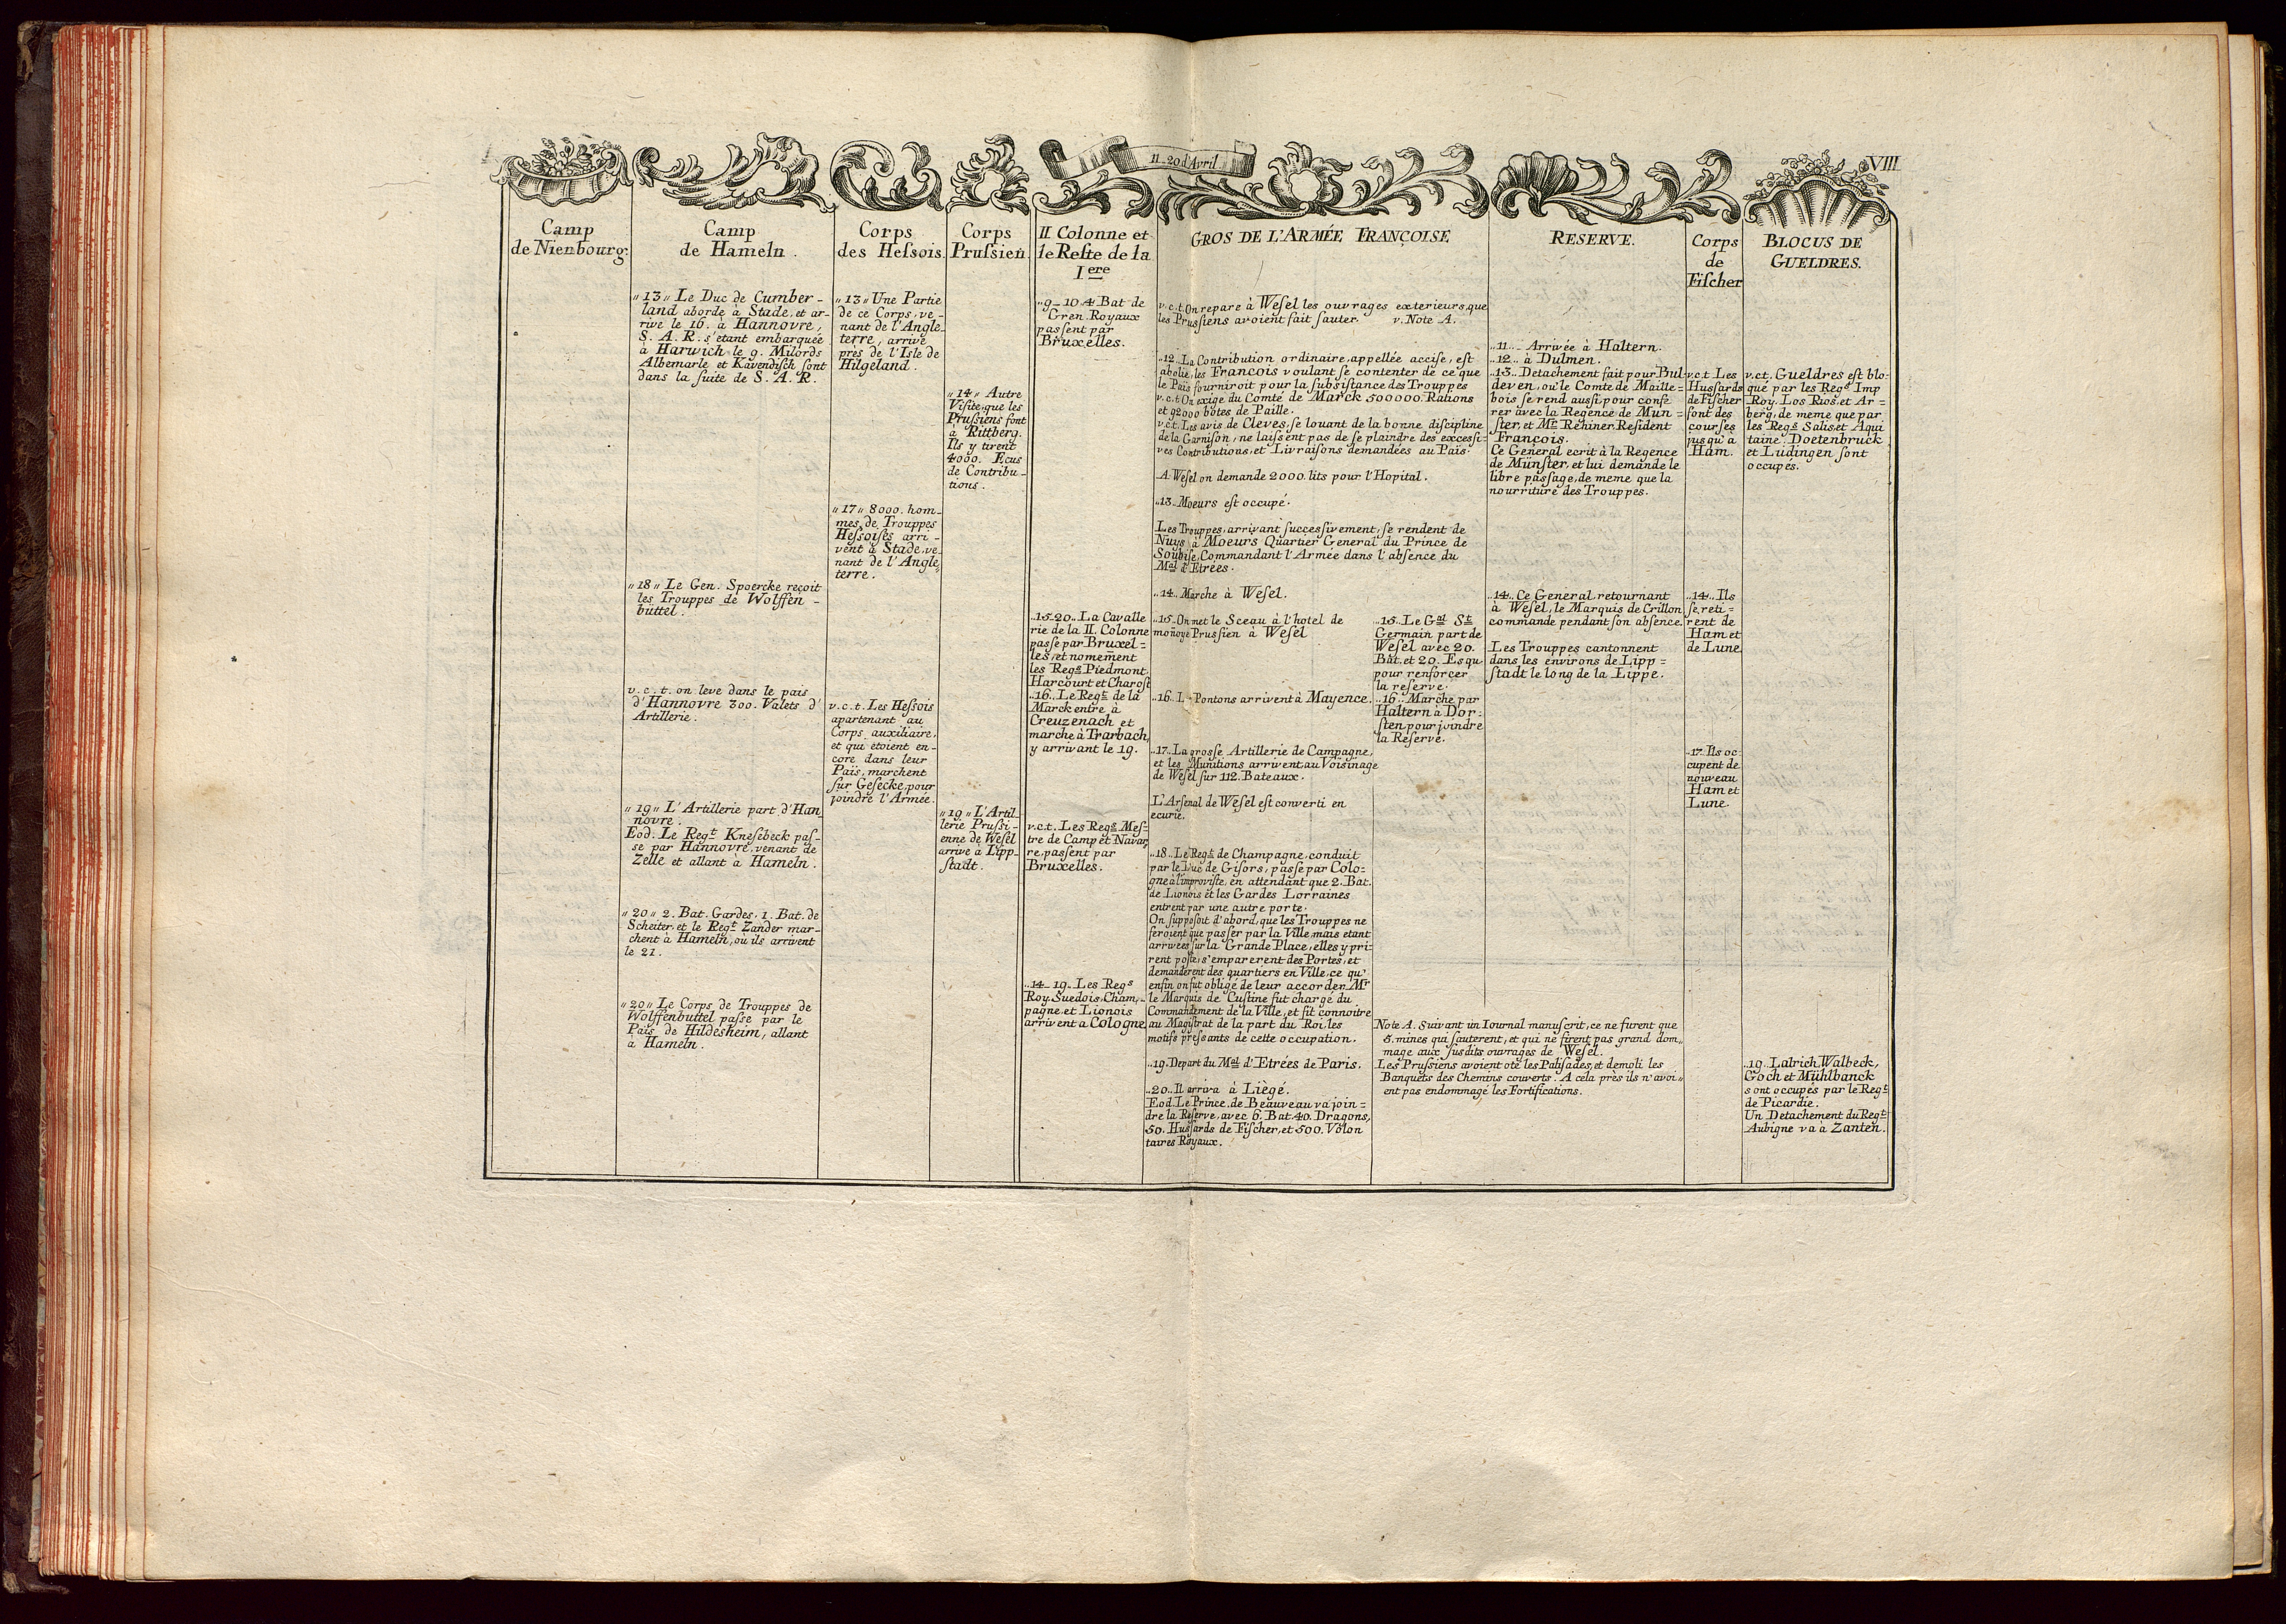 11_20 d'Avril
VIII
Camp
de Nienbourg.
Camp
de Hameln.
„13„ Le Duc de Cumber-
land aborde à Stade, et ar-
rive le 16. à Hannovre,
S. A. R. s'étant embarquée
à Harwich le 9. Milords
Albemarle et Kavendisch sont
dans la suite de S. A. R.
„18„ Le Gen. Spoercke reçoit
les Trouppes de Wolffen-
büttel.
v. c. t. on leve dans le pais
d'Hannovre 300. Valets d'
Artillerie.
„19„ L'Artillerie part d'Han-
novre.
Eod. Le Regt. Knesebeck pas-
se par Hannovre, venant de
Zelle et allant à Hameln.
„20„ 2. Bat. Gardes, 1. Bat. de
Scheiter, et le Regt. Zander mar-
chent à Hameln, où ils arrivent
le 21.
„20„ Le Corps de Trouppes de
Wolffenbuttel passe par le
Païs de Hildesheim, allant
à Hameln.
Corps
des Hessois.
„13„ Une Partie
de ce Corps, ve-
nant de l'Angle-
terre, arrive
près de l'Isle de
Hilgeland.
„17„ 8000. hom-
mes, de Trouppes
Hessoises arri-
vent à Stade, ve-
nant de l'Angle-
terre.
v. c. t. Les Hessois
apartenant au
Corps auxiliaire,
et qui etoient en-
core dans leur
Païs, marchent
sur Gesecke, pour
joindre l'Armée.
Corps
Prussien
„14„ Autre
Visite, que les
Prussiens font
à Rittberg.
Ils y tirent
4000. Ecus
de Contribu-
tions.
„19„ L'Artil-
lerie Prussi-
enne de Wesel
arrive à Lipp-
stadt.
II Colonne et
le Reste de la
Iere
„9_10„ 4 Bat de
Gren. Royaux
passent par
Bruxelles.
„15_20„ La Cavalle
rie de la II. Colonne
passe par Bruxel=
les, et nomement
les Regs. Piedmont
Harcourt et Charost
„16„ Le Regt. de la
Marck entre à
Creuzenach et
marche à Trarbach,
y arrivant le 19.
v.c.t. Les Regs. Mes=
tre de Camp et Navar
re, passent par
Bruxelles.
„14_19„ Les Regs
Roy. Suedois, Cham-
pagne, et Lionois
arrivent a Cologne.
GROS DE L'ARMÉE FRANÇOISE
v.c.t. On repare à Wesel les ouvrages exterieurs, que
les Prussiens avoient fait sauter. v. Note A.
„12„ La Contribution ordinaire, appellée accise, est
abolie, les Francois voulant se contenter de ce que
le Païs fourniroit pour la subsistance des Trouppes
v.c.t. On exige du Comté de Marck 500000. Rations
et 92000 botes de Paille.
v.c.t. Les avis de Cleves, se louant de la bonne discipline
de la Garnison, ne laissent pas de se plaindre des excessi=
ves Contributions, et Livraisons demandées au Païs.
A. Wesel on demande 2000. lits pour l'Hopital.
„13„ Moeurs est occupé.
Les Trouppes, arrivant successivement, se rendent de
Nuys à Moeurs Quartier General du Prince de
Soubise Commandant l'Armée dans l'absence du
Mal d'Etrées.
„14„ Marche à Wesel.
„15„ On met le Sceau à l'hotel de
monoye Prussien à Wesel
„16„ L. Pontons arrivent à Mayence.
„17„ La grosse Artillerie de Campagne,
et les Munitions arrivent au Voisinage
de Wesel sur 112. Bateaux.
L'Arsenal de Wesel est converti en
ecurie.
„18„ Le Regt. de Champagne, conduit
par le Duc de Gisors, passe par Colo=
gne à l'improviste, en attendant que 2. Bat.
de Lionois et les Gardes Lorraines
entrent par une autre porte.
On supposoit d'abord, que les Trouppes ne
seroient que passer par la Ville, mais etant
arrivées sur la Grande Place, elles y pri-
rent poste, s'emparerent des Portes, et
demanderent des quartiers en Ville, ce qu'
enfin on fut obligé de leur accorder. Mr
le Marquis de Custine fut chargé du
Commandement de la Ville, et fit connoitre
au Magistrat de la part du Roi, les
motifs pressants de cette occupation.
„19„ Depart du Mal d'Etrées de Paris.
„20„ Il arrive à Liègé.
Eod. Le Prince de Beauveau va join=
dre la Reserve, avec 6. Bat. 40. Dragons,
50. Hussards de Fischer, et 500. Volon
taires Royaux.
„15„ Le Gal St
Germain part de
Wesel avec 20.
Bat. et 20. Esqu
pour renforcer
la reserve.
„16„ Marche par
Haltern à Dor=
sten, pour joindre
la Reserve.
RESERVE.
„11„ Arrivée à Haltern.
„12„ à Dulmen.
„13„ Detachement fait pour Bul-
deven, ou le Comte de Maille=
bois se rend aussi, pour confe
rer avec la Regence de Mun=
ster, et Mr. Rehiner, Resident
François.
Ce General ecrit à la Regence
de Münster, et lui demande le
libre passage, de meme que la
nourriture des Trouppes.
„14„ Ce General retournant
à Wesel, le Marquis de Crillon
commande pendant son absence.
Les Trouppes cantonnent
dans les environs de Lipp=
stadt le long de la Lippe.
Note A. Suivant un Iournal manuscrit, ce ne furent que
5. mines qui sauterent, et qui ne firent pas grand dom=
mage aux susdits ouvrages de Wesel.
Les Prussiens avoient oté les Palisades, et demoli les
Banquets des Chemins couverts. A cela près ils n'avoi=
ent pas endommagé les Fortifications.
Corps
de
Fischer
v.c.t Les
Hussards
de Fischer
font des
courses
jusqu'à
Ham.
„14„ Ils
se reti=
rent de
Ham et
de Lune.
„17„ Ils oc=
cupent de
nouveau
Ham et
Lune.
BLOCUS DE
GUELDRES.
v.c.t. Gueldres est blo=
qué par les Regs Imp
Roy. Los Rios, et Ar=
berg, de meme que par
les Regs Salis, et Aqui
taine. Doetenbruck
et Ludingen sont
occupés.
„19„ Latrich, Walbeck,
Goch et Mühlbanck
sont occupés par le Regt
de Picardie.
Un Detachement du Regt.
Aubigne va à Zanten.